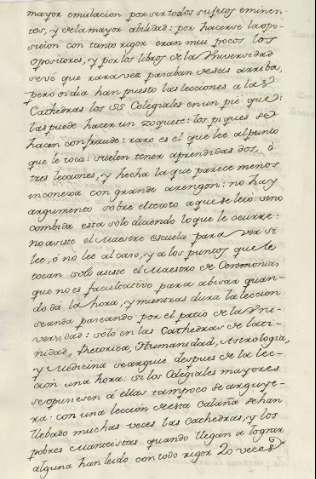 mayor emulacion por ser todos sujetos eminen-
tes, y de la mayor abilidad: por hacerse la opo-
sicion con tanto rigor eran mui pocos los
opositores, y por los libros de la Universidad
se vé que rara vez pasaban de seis arriba,
pero oi dia han puesto las lecciones a las
Cathedras los SS Colegiales en un pie que
las puede hacer un zoquete: los piques se
hacen con fraude: raro es el que lee al punto
que le toca: suelen tener aprendidas dos, ò
tres lecciones, y hecha la que parece menos
inconexa con grande arengon: no hay
argumento sobre el texto a que se leió sino
combida esta solo diciendo lo que le ocurre:
no asiste el Maestre escuela para ver si
lee, ò no lee al caso, y a los puntos que le
tocan solo asiste el Maestro de Ceremonias
que no es facultativo para abisar quan-
do dá la hora, y mientras dura la leccion
se anda paseando por el patio de la Uni-
versidad: solo en las Cathedras de lati-
nidad, Rhetorica, Humanidad, Astrologia,
y Medicina se arguie despues de la lec-
cion una hora. Si los Colegiales mayores
se opusiesen à ellas tampoco se arguye-
ra: con una leccion de esta calaña se han
llebado muchas veces las cathedras, y los
pobres Manteistas quando llegan a lograr
alguna han leido con todo rigor 20 veces